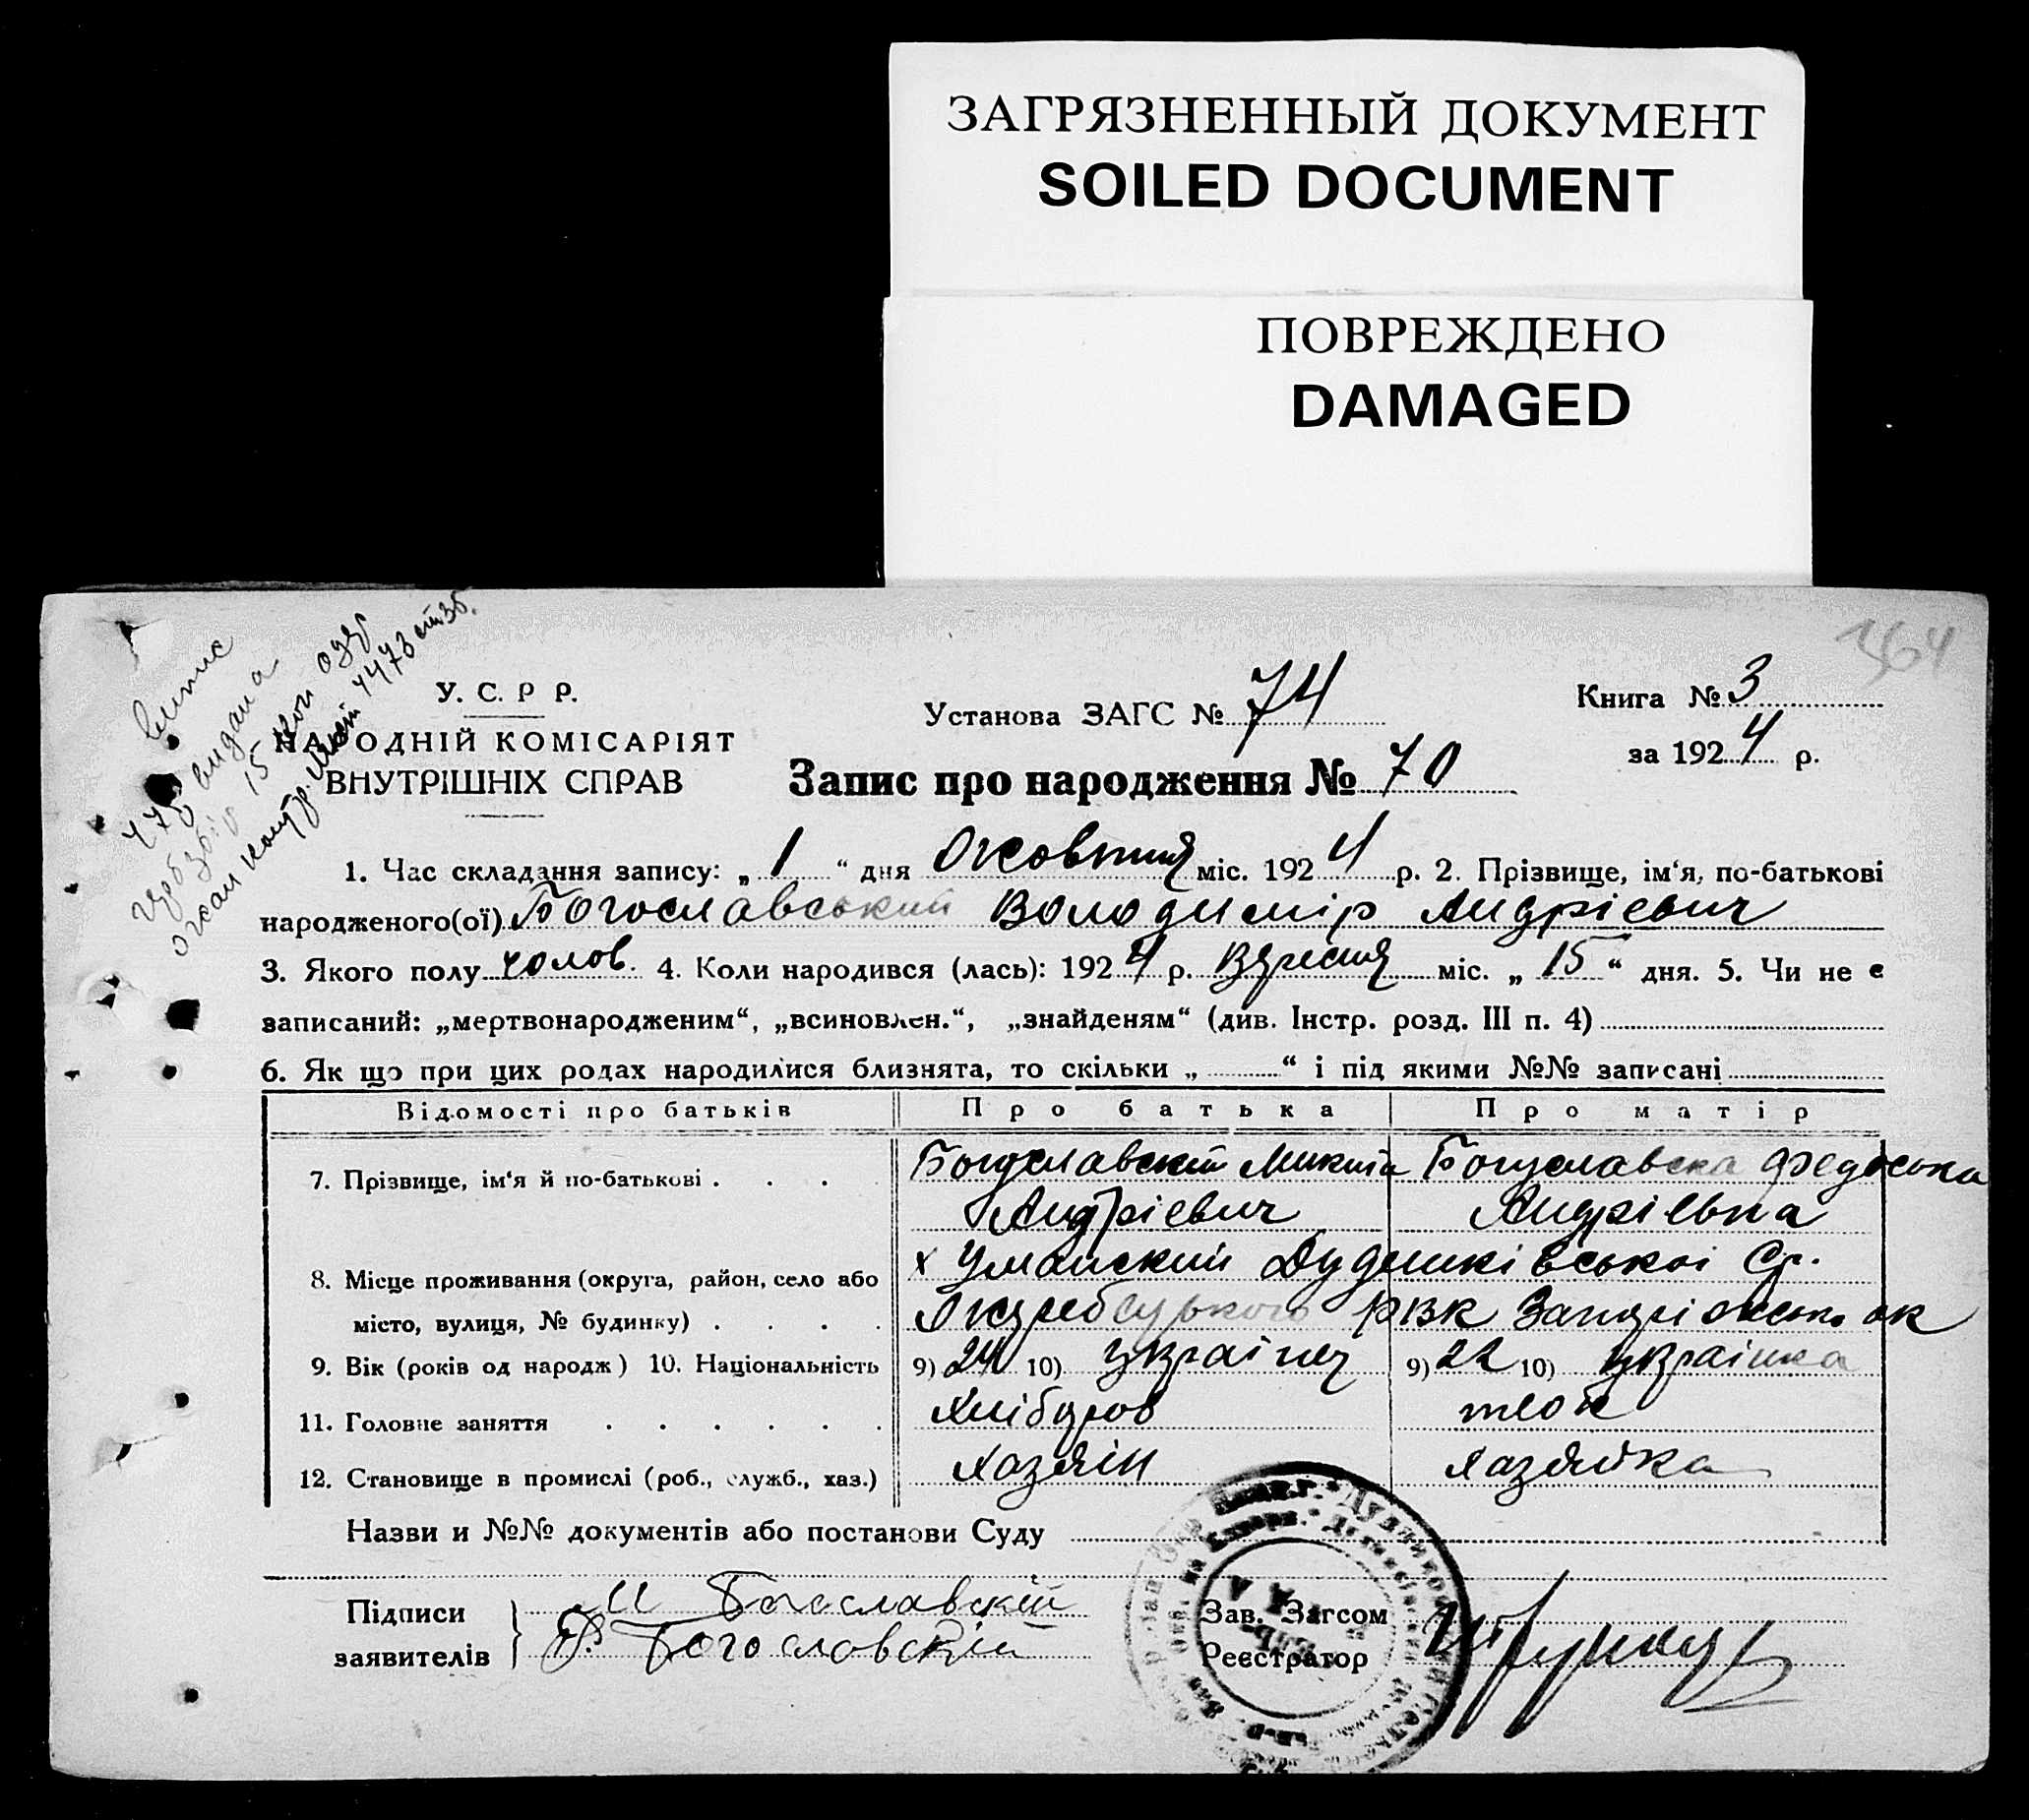 ЗАГРЯЗНЕННЫЙ ДОКУМЕНТ
SOILED DOCUMENT
ПОВРЕЖДЕНО
DAMAGED
364
У. С. Р Р.
НАРОДНІЙ КОМІСАРІЯТ
ВНУТРІШНІХ СПРАВ
Установа ЗАГС № 74
Книга № 3
за 1924 р.
Запис про народження № 70
видана
15 коп
1. Час складання запису: „ 1 “ дня Жовтня міс. 1924 р. 2. Прізвище, ім‘я, по-батькові
народженого(ої) Богославський Володимір Андрієвич
3. Якого полу чолов. 4. Коли народився (лась): 1924 р. Вересня міс. „ 15 “ дня. 5. Чи не є
записаний: „мертвонародженим“, „всиновлен.“, „знайденям“ (див. Інстр. розд. III п. 4)
6. Як що при цих родах народилися близнята, то скільки „ “ і під якими №№ записані
Відомості про батьків Про батька Про матір
7. Прізвище, ім‘я й по-батькові . . . . Богуславский Микита Богуславска Федоська
Андрієвич Андрієвна
8. Місце проживання (округа, район, село або х Уманский Ср.
місто, вулиця, № будинку) . . . . РВК ок
9. Вік (років од народж) 10. Національність 9) 24 10) українец 9) 22 10) українка
11. Головне заняття . . . . . . Хлібороб теож
12. Становище в промислі (роб., служб., хаз.) Хазяїн хазяйка
Назви и №№ документів або постанови Суду
Підписи
заявителів
Богославскій
Богословскій
Зав. Загсом
Реєстратор